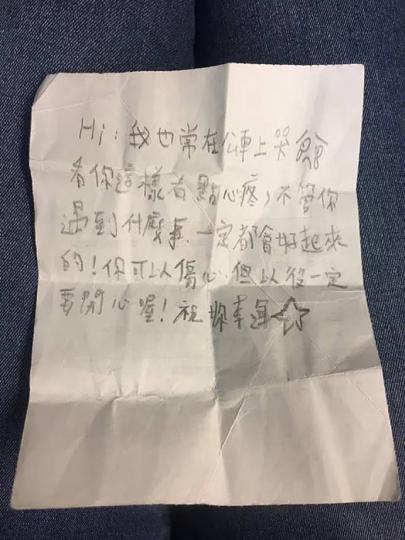 Hi：我也常在公車上哭 會會
看你這樣有點心疼，不管你
遇到什麼事，一定都會好起來
的！你可以傷心，但以後一定
要開心喔！祝妳幸運☆